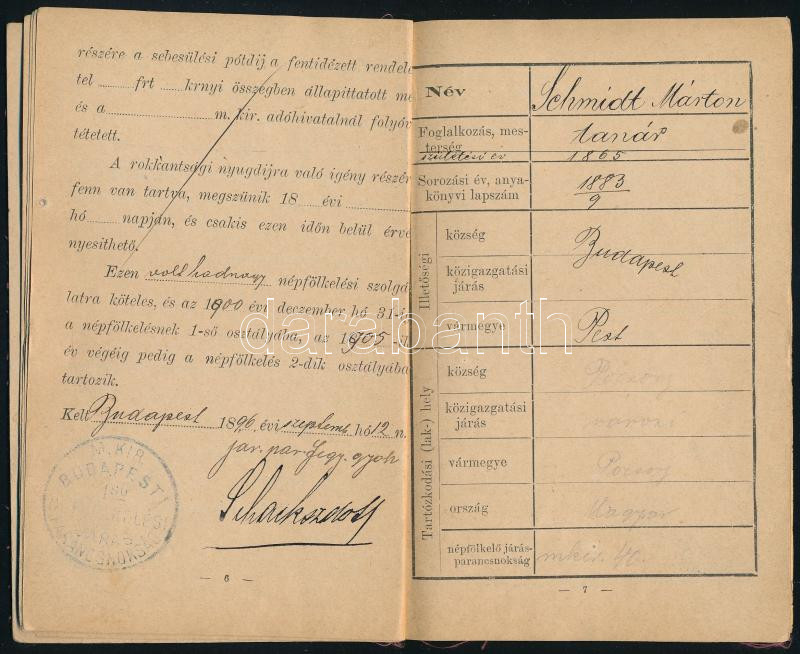 részére a sebesülési pótdíj a fentidézett rendele
tel ...... frt ...... krnyi összegben állapittatott me
és a ............ m. kir. adóhivatalnál folyóv
tétetett.
A rokkantsági nyugdijra való igény részér
fenn van tartva, megszünik 18 ...... évi ......
hó ...... napján, és csakis ezen időn belül érvé
nyesíthető.
Ezen volt hadnagy népfölkelési szolgá
latra köteles, és az 1900 évi deczember hó 31-i
a népfölkelésnek 1-ső osztályába, az 1905-ik
év végéig pedig a népfölkelés 2-dik osztályába
tartozik.
Kelt Budapest 1896 évi szeptemb hó 12 n.
M. KIR.
BUDAPESTI
— 6 —
Név Schmidt Márton
Foglalkozás, mes-
terség tanár
születési év 1865
Sorozási év, anya-
könyvi lapszám 1883/9
Illetőségi
község Budapest
közigazgatási
járás
vármegye Pest
Tartózkodási (lak-) hely
község Pozsony
közigazgatási
járás város
vármegye Pozsony
ország Magyar
népfölkelő járás-
parancsnokság mkir.
— 7 —
darabanth